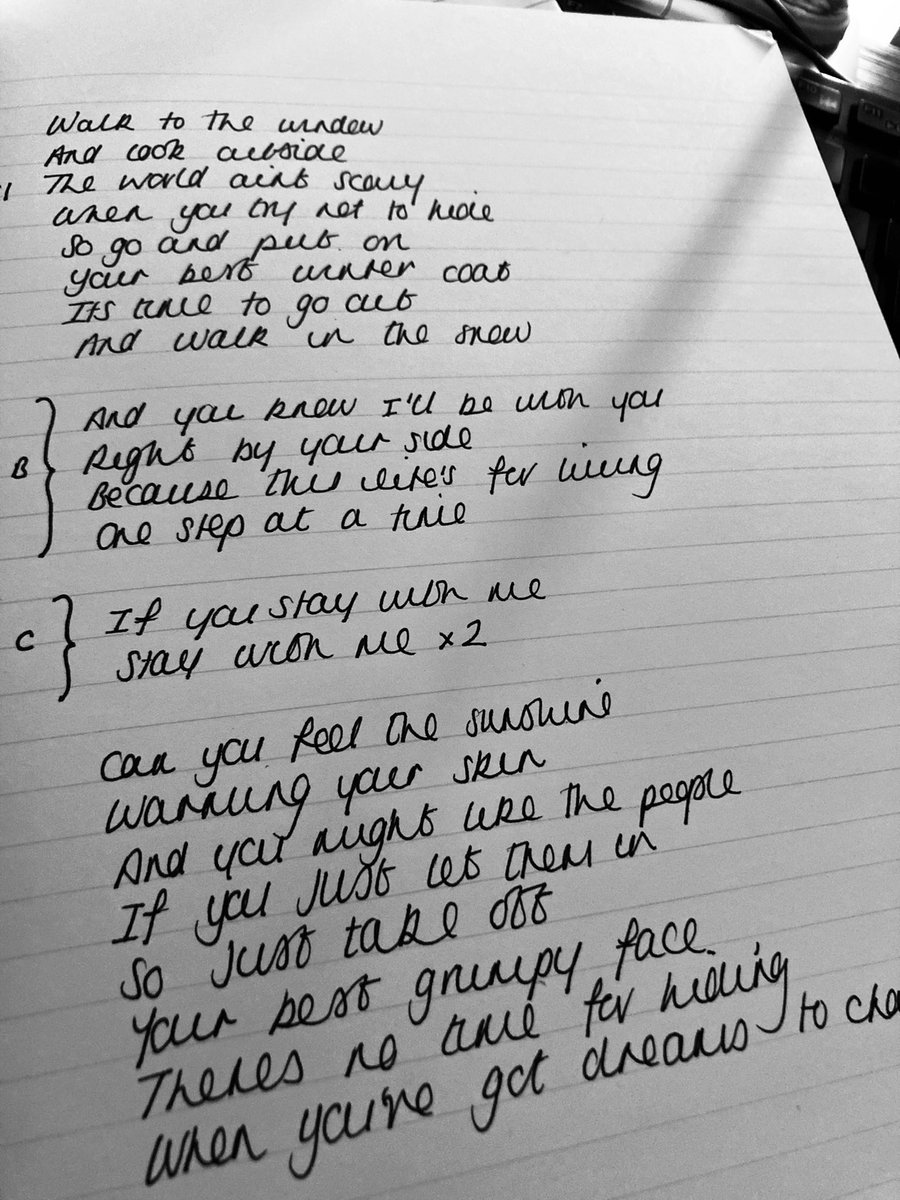 Walk to the window
And look outside
1 The world aint scary
when you try not to hide
So go and put on
your best winter coat
Its time to go out
And walk in the snow
B
And you know I'll be with you
Right by your side
Because this life's for living
One step at a time
C
If you stay with me
Stay with me x2
Can you feel the sunshine
Warming your skin
And you might like the people
If you just let them in
So just take off
Your best grumpy face
Theres no time for hiding
When you've got dreams to cha